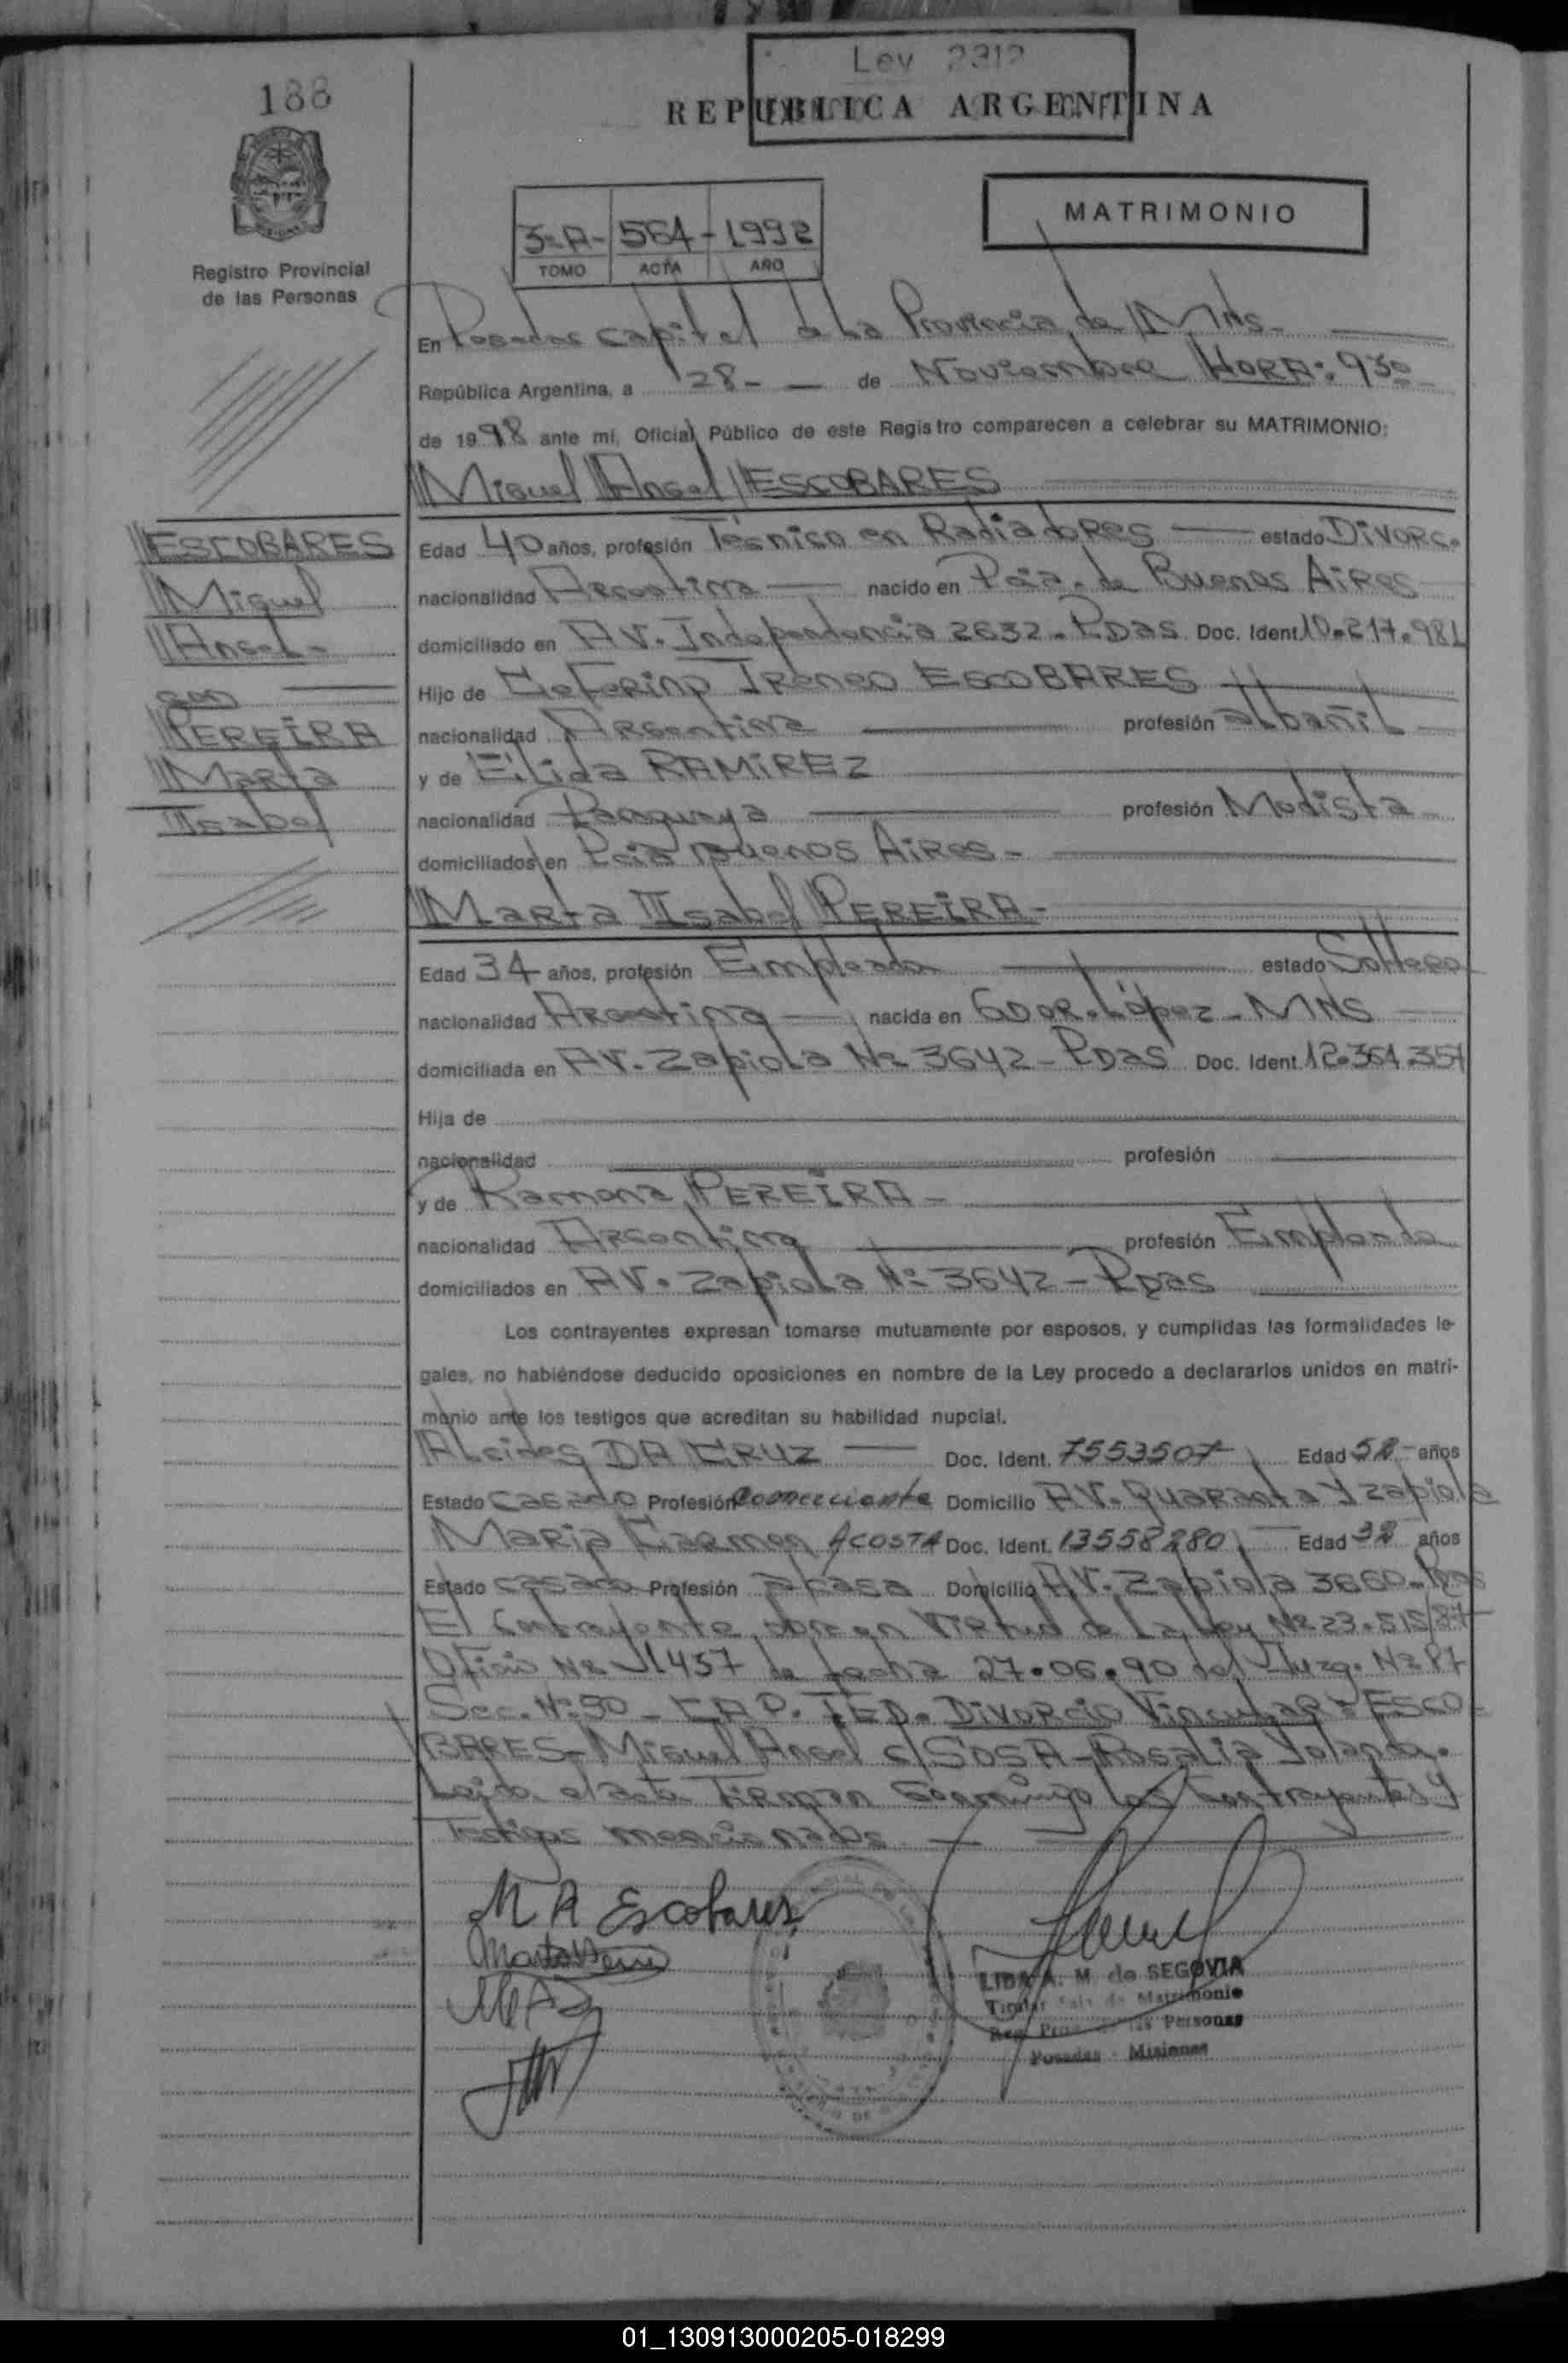 188
Ley 2312
REPUBLICA ARGENTINA
MATRIMONIO
3=A- 564 - 1992
TOMO ACTA AÑO
Registro Provincial
de las Personas
En Posadas capital de La Provincia de Mns-
República Argentina, a 28- de Noviembre HORA: 930
de 19 98 ante mí, Oficial Público de este Registro comparecen a celebrar su MATRIMONIO:
Miguel Angel ESCOBARES
ESCOBARES
Miguel
Angel-
con
PEREIRA
Marta
Isabel
Edad 40 años, profesión Técnico en Radiadores estado Divorc.
nacionalidad Argentina nacido en Pcia. de Buenos Aires
domiciliado en AV. Independencia 2632- Pdas Doc. Ident 10.217.981
Hijo de Ceferino Ireneo ESCOBARES
nacionalidad Argentina profesión albañil
y de Elida RAMIREZ
nacionalidad Paraguaya profesión Modista
domiciliados en Pcia Buenos Aires-
Marta Isabel PEREIRA-
Edad 34 años, profesión Empleada estado Soltera
nacionalidad Argentina nacida en GDOR. López- MNS
domiciliada en AV. Zapiola Nº 3642- Pdas Doc. Ident. 12.364.351
Hija de
nacionalidad profesión
y de Ramona PEREIRA-
nacionalidad Argentina profesión Empleada
domiciliados en AV. Zapiola Nº 3642- Pdas
Los contrayentes expresan tomarse mutuamente por esposos, y cumplidas las formalidades le-
gales, no habiéndose deducido oposiciones en nombre de la Ley procedo a declararlos unidos en matri-
monio ante los testigos que acreditan su habilidad nupcial.
Alcides DA CRUZ Doc. Ident. 7553507 Edad 52 años
Estado Casado Profesión comerciante Domicilio AV. Quaranta y Zapiola
Maria Carmen ACOSTA Doc. Ident. 13558280 Edad 32 años
Estado casada Profesión a casa Domicilio AV. Zapiola 3660- Pdas
El Contrayente en Virtud de La Ley Nº 23.515/87
Oficio Nº 1437 de fecha 27.06.90 del Juzg. Nº 87
Sec. Nº 90- CAP. FED. Divorcio Vincular: ESCO-
BARES- Miguel Angel c/ SOSA- Rosalia Yolanda.
Leida el acta Firman conmigo los Contrayentes y
Testigos mencionados
M A Escobares
LIDA A. M. de SEGOVIA
Titular Sala de Matrimonio
Reg. Prov. de las Personas
Posadas - Misiones
01_130913000205-018299